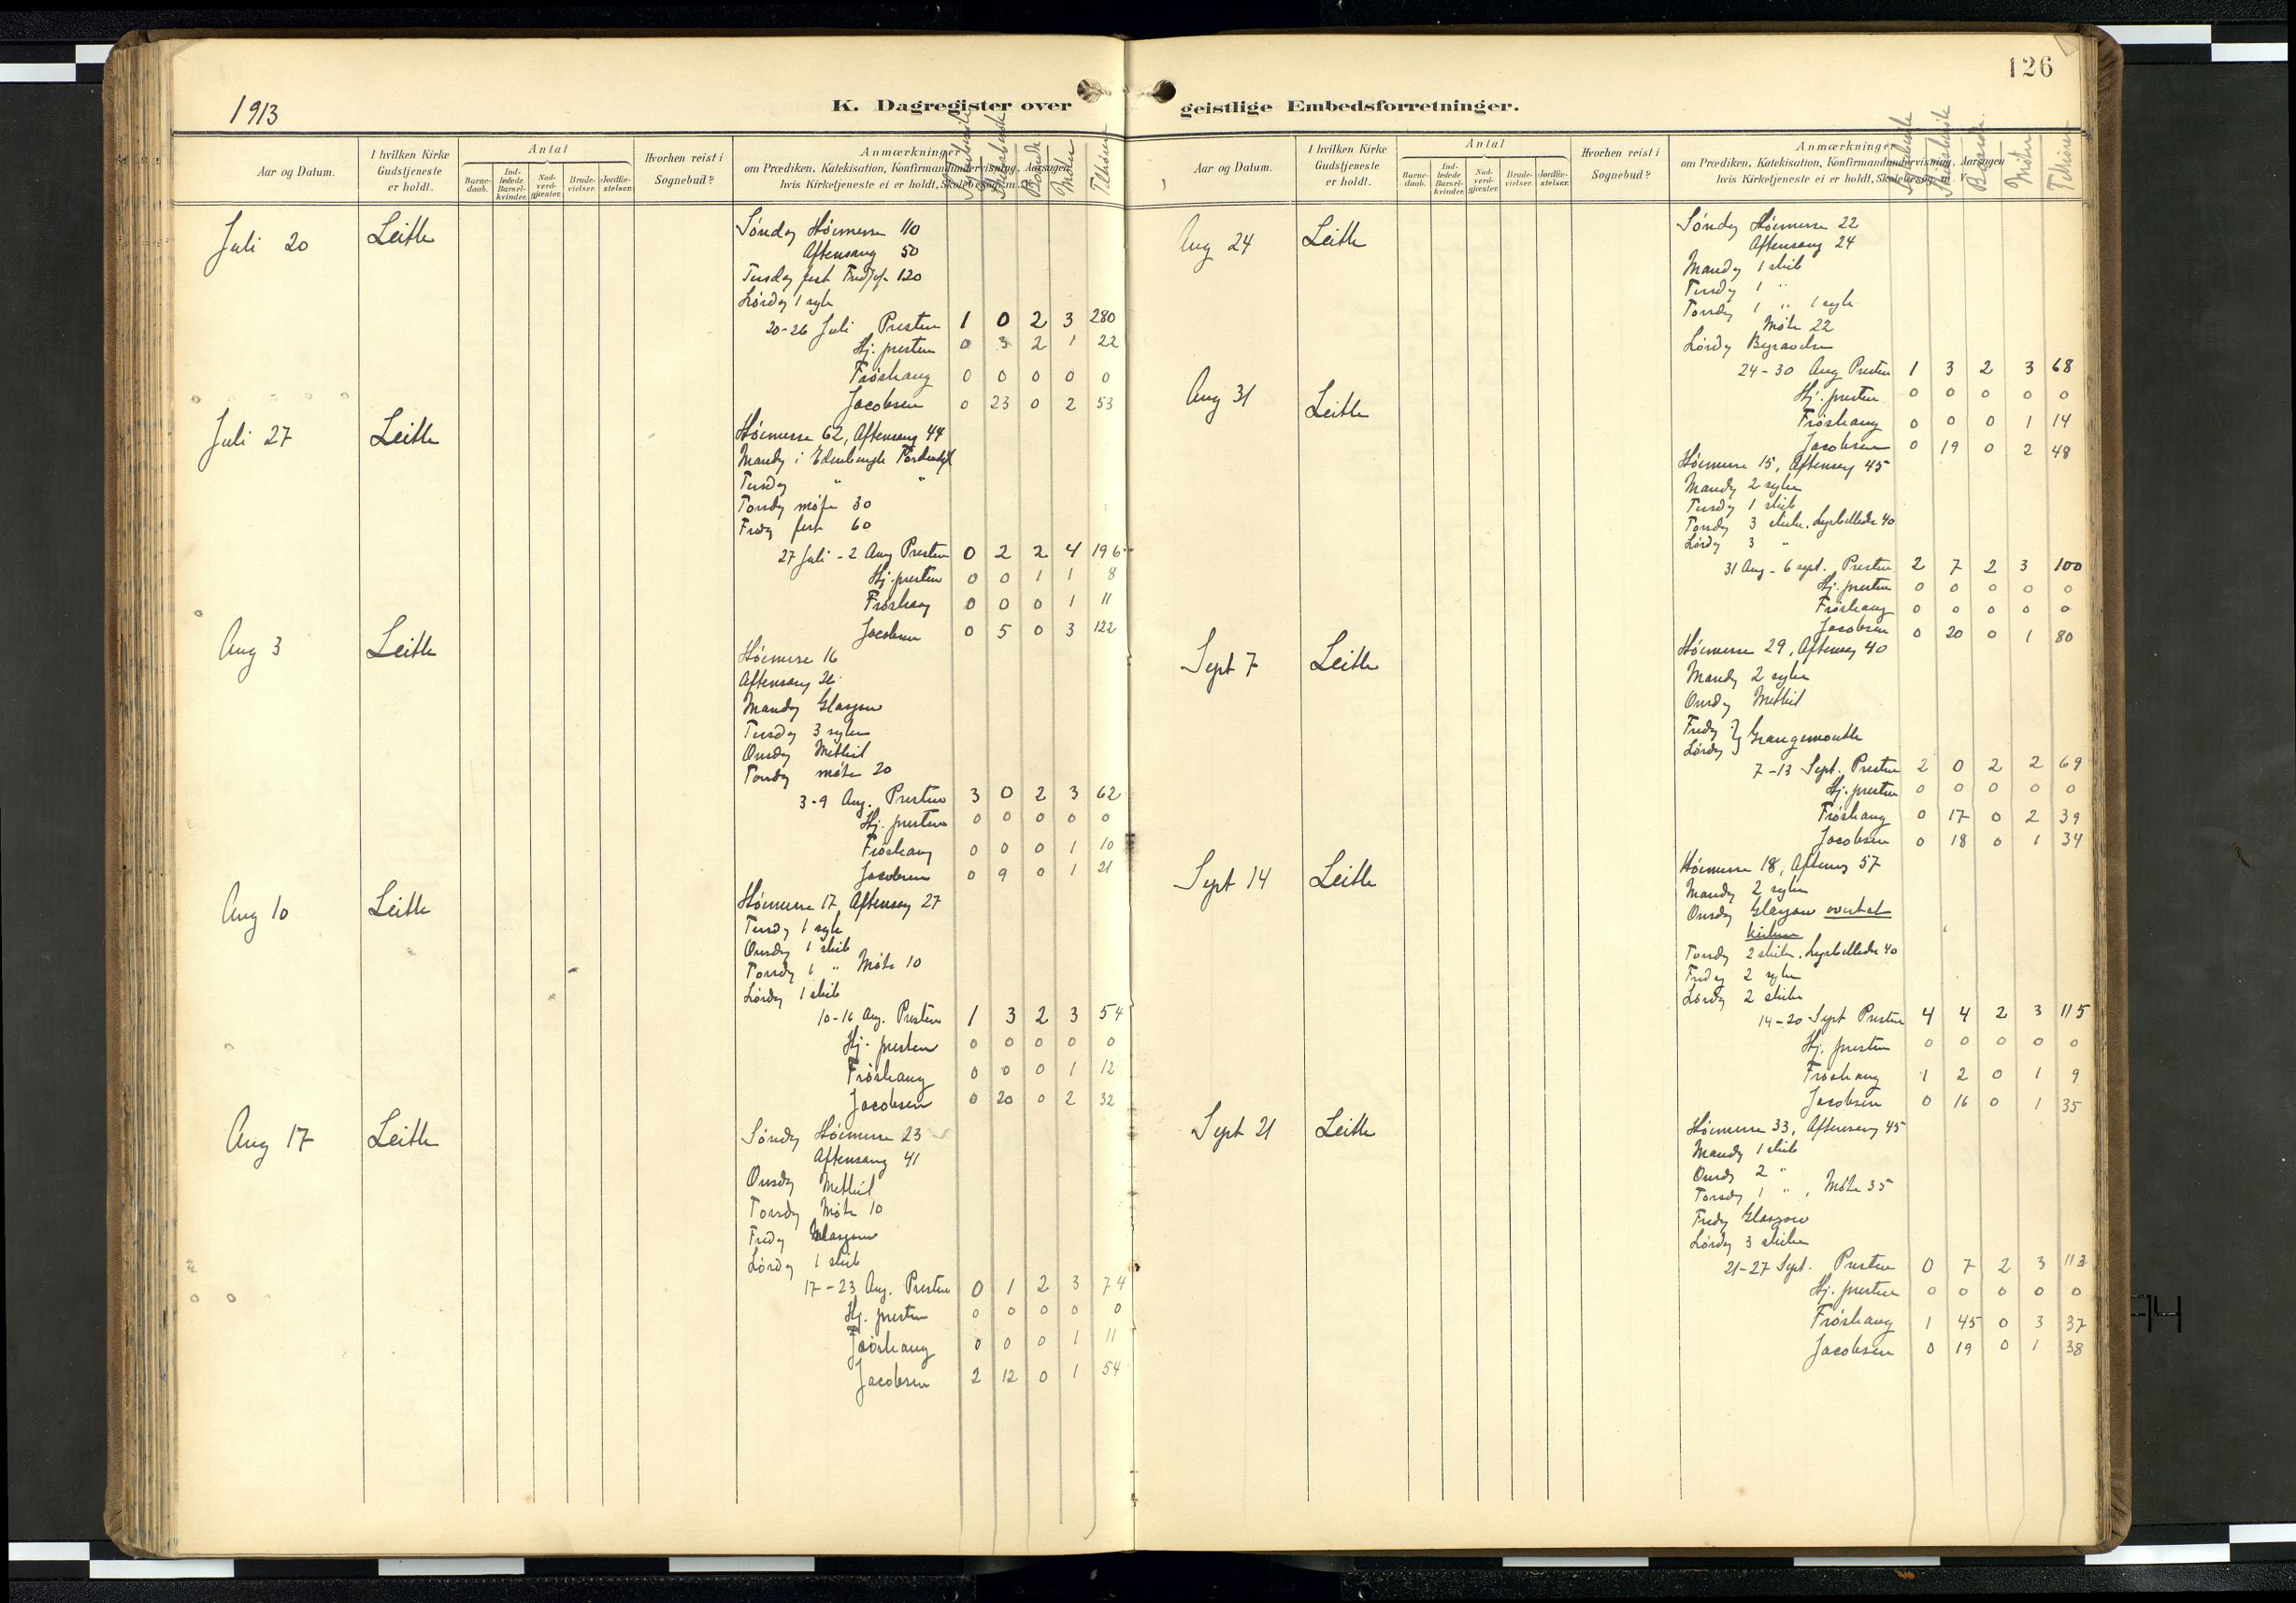 1913
K. Dagregister over
Aar og Datum.
I hvilken Kirke Gudstjeneste er holdt.
Antal
Barnedaab.
Indledede Barselkvinder.
Nadverdgjæster.
Brudevielser.
Jordfæstelser.
Hvorhen reist i Sognebud?
Anmærkninger
om Prædiken, Katekisation, Konfirmandundervisning, Aarsagen
hvis Kirketjeneste ei er holdt, Skolebesøg m. V.
Møter
Juli 20 Leith
Søndag Høimesse 110
Aftensang 50
Tirsdag fest 120
Lørdag 1 syk
20-26 Juli Presten 1 0 2 3 280
Hj. presten 0 3 2 1 22
Frøshaug 0 0 0 0 0
Jacobsen 0 23 0 2 53
Juli 27 Leith
Høimesse 62, Aftensang 44
Mandg i Edinburgh
Tirsdag " "
Torsdg møte 30
Fredg fest 60
27 Juli - 2 Aug Presten 0 2 2 4 196
Hj. presten 0 0 1 1 8
Frøshaug 0 0 0 1 11
Jacobsen 0 5 0 3 122
Aug 3 Leith
Høimesse 16
Aftensang 26
Mandg Glasgow
Tirsdag 3 syke
Onsdg Methil
Torsdg møte 20
3-9 Aug. Presten 3 0 2 3 62
Hj. presten 0 0 0 0 0
Frøshaug 0 0 0 1 10
Jacobsen 0 9 0 1 21
Aug 10 Leith
Høimesse 17 Aftensang 27
Tirsdg 1 syk
Onsdg 1 skib
Torsdg 1 " Møte 10
Lørdg 1 skib
10-16 Aug. Presten 1 3 2 3 54
Hj. presten 0 0 0 0 0
Frøshaug 0 0 0 1 12
Jacobsen 0 20 0 2 32
Aug 17 Leith
Søndg Høimesse 23
Aftensang 41
Onsdg Methil
Torsdg Møte 10
Fredg Glasgow
Lørdg 1 skib
17-23 Aug. Presten 0 1 2 3 74
Hj. presten 0 0 0 0 0
Frøshaug 0 0 0 1 11
Jacobsen 2 12 0 1 54
126
geistlige Embedsforretninger.
Aar og Datum.
I hvilken Kirke Gudstjeneste er holdt.
Antal
Barnedaab.
Indledede Barselkvinder.
Nadverdgjæster.
Brudevielser.
Jordfæstelser.
Hvorhen reist i Sognebud?
Anmærkninger
om Prædiken, Katekisation, Konfirmandundervisning, Aarsagen
hvis Kirketjeneste ei er holdt, Skolebesøg m. V.
Sykebesøk
Skibsbesøk
Møter
Tilhørere
Aug 24 Leith
Søndg Høimesse 22
Aftensang 24
Mandg 1 skib
Tirsdg 1 "
Torsdg 1 " 1 syk
Møte 22
Lørdg Begravelse
24-30 Aug Presten 1 3 2 3 68
Hj. presten 0 0 0 0 0
Frøshaug 0 0 0 1 14
Jacobsen 0 19 0 2 48
Aug 31 Leith
Høimesse 15, Aftensang 45
Mandg 2 syke
Tirsdg 1 skib
Torsdg 3 skibe. Lysbilleder 40
Lørdg 3 "
31 Aug - 6 sept. Presten 2 7 2 3 100
Hj. presten 0 0 0 0 0
Frøshaug 0 0 0 0 0
Jacobsen 0 20 0 1 80
Sept 7 Leith
Høimesse 29, Aftensg 40
Mandg 2 syke
Onsdg Methil
Fredg } Grangemouth
Lørdg
7-13 Sept. Presten 2 0 2 2 69
Hj. presten 0 0 0 0 0
Frøshaug 0 17 0 2 39
Jacobsen 0 18 0 1 34
Sept 14 Leith
Høimesse 18, Aftensg 57
Mandg 2 syke
Onsdg Glasgow overtat
kirken
Torsdg 2 skibe. Lysbilleder 40
Fredag 2 syke
Lørdg 2 skibe
14-20 Sept Presten 4 4 2 3 115
Hj. presten 0 0 0 0 0
Frøshaug 1 2 0 1 9
Jacobsen 0 16 0 1 35
Sept 21 Leith
Høimesse 33, Aftensang 45
Mandg 1 skib
Onsdg 2 "
Torsdg 1 ", Møte 35
Fredg Glasgow
Lørdg 3 skibe
21-27 Sept. Presten 0 7 2 3 113
Hj. presten 0 0 0 0 0
Frøshaug 1 45 0 3 37
Jacobsen 0 19 0 1 38